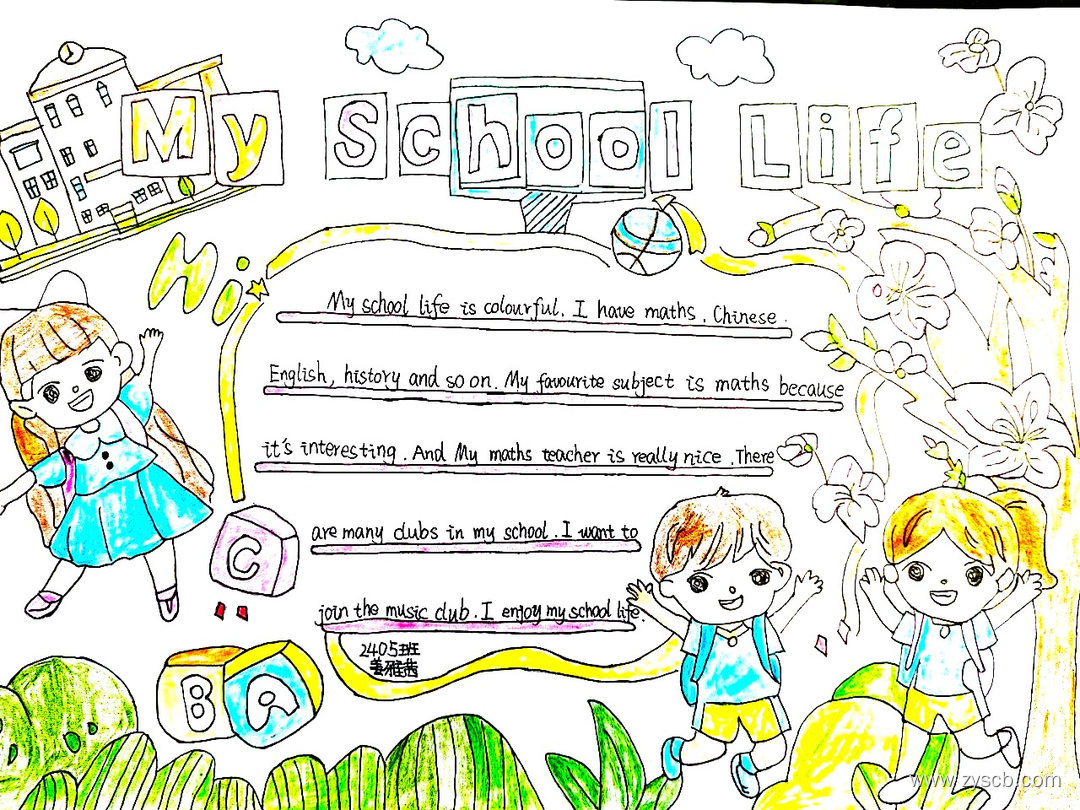 My School Life
Hi
My school life is colourful. I have maths. Chinese.
English, history and so on. My favourite subject is maths because
it's interesting. And My maths teacher is really nice. There
are many clubs in my school. I want to
join the music club. I enjoy my school life.
2405班
姜雅茜
C
B A
www.zyscb.com